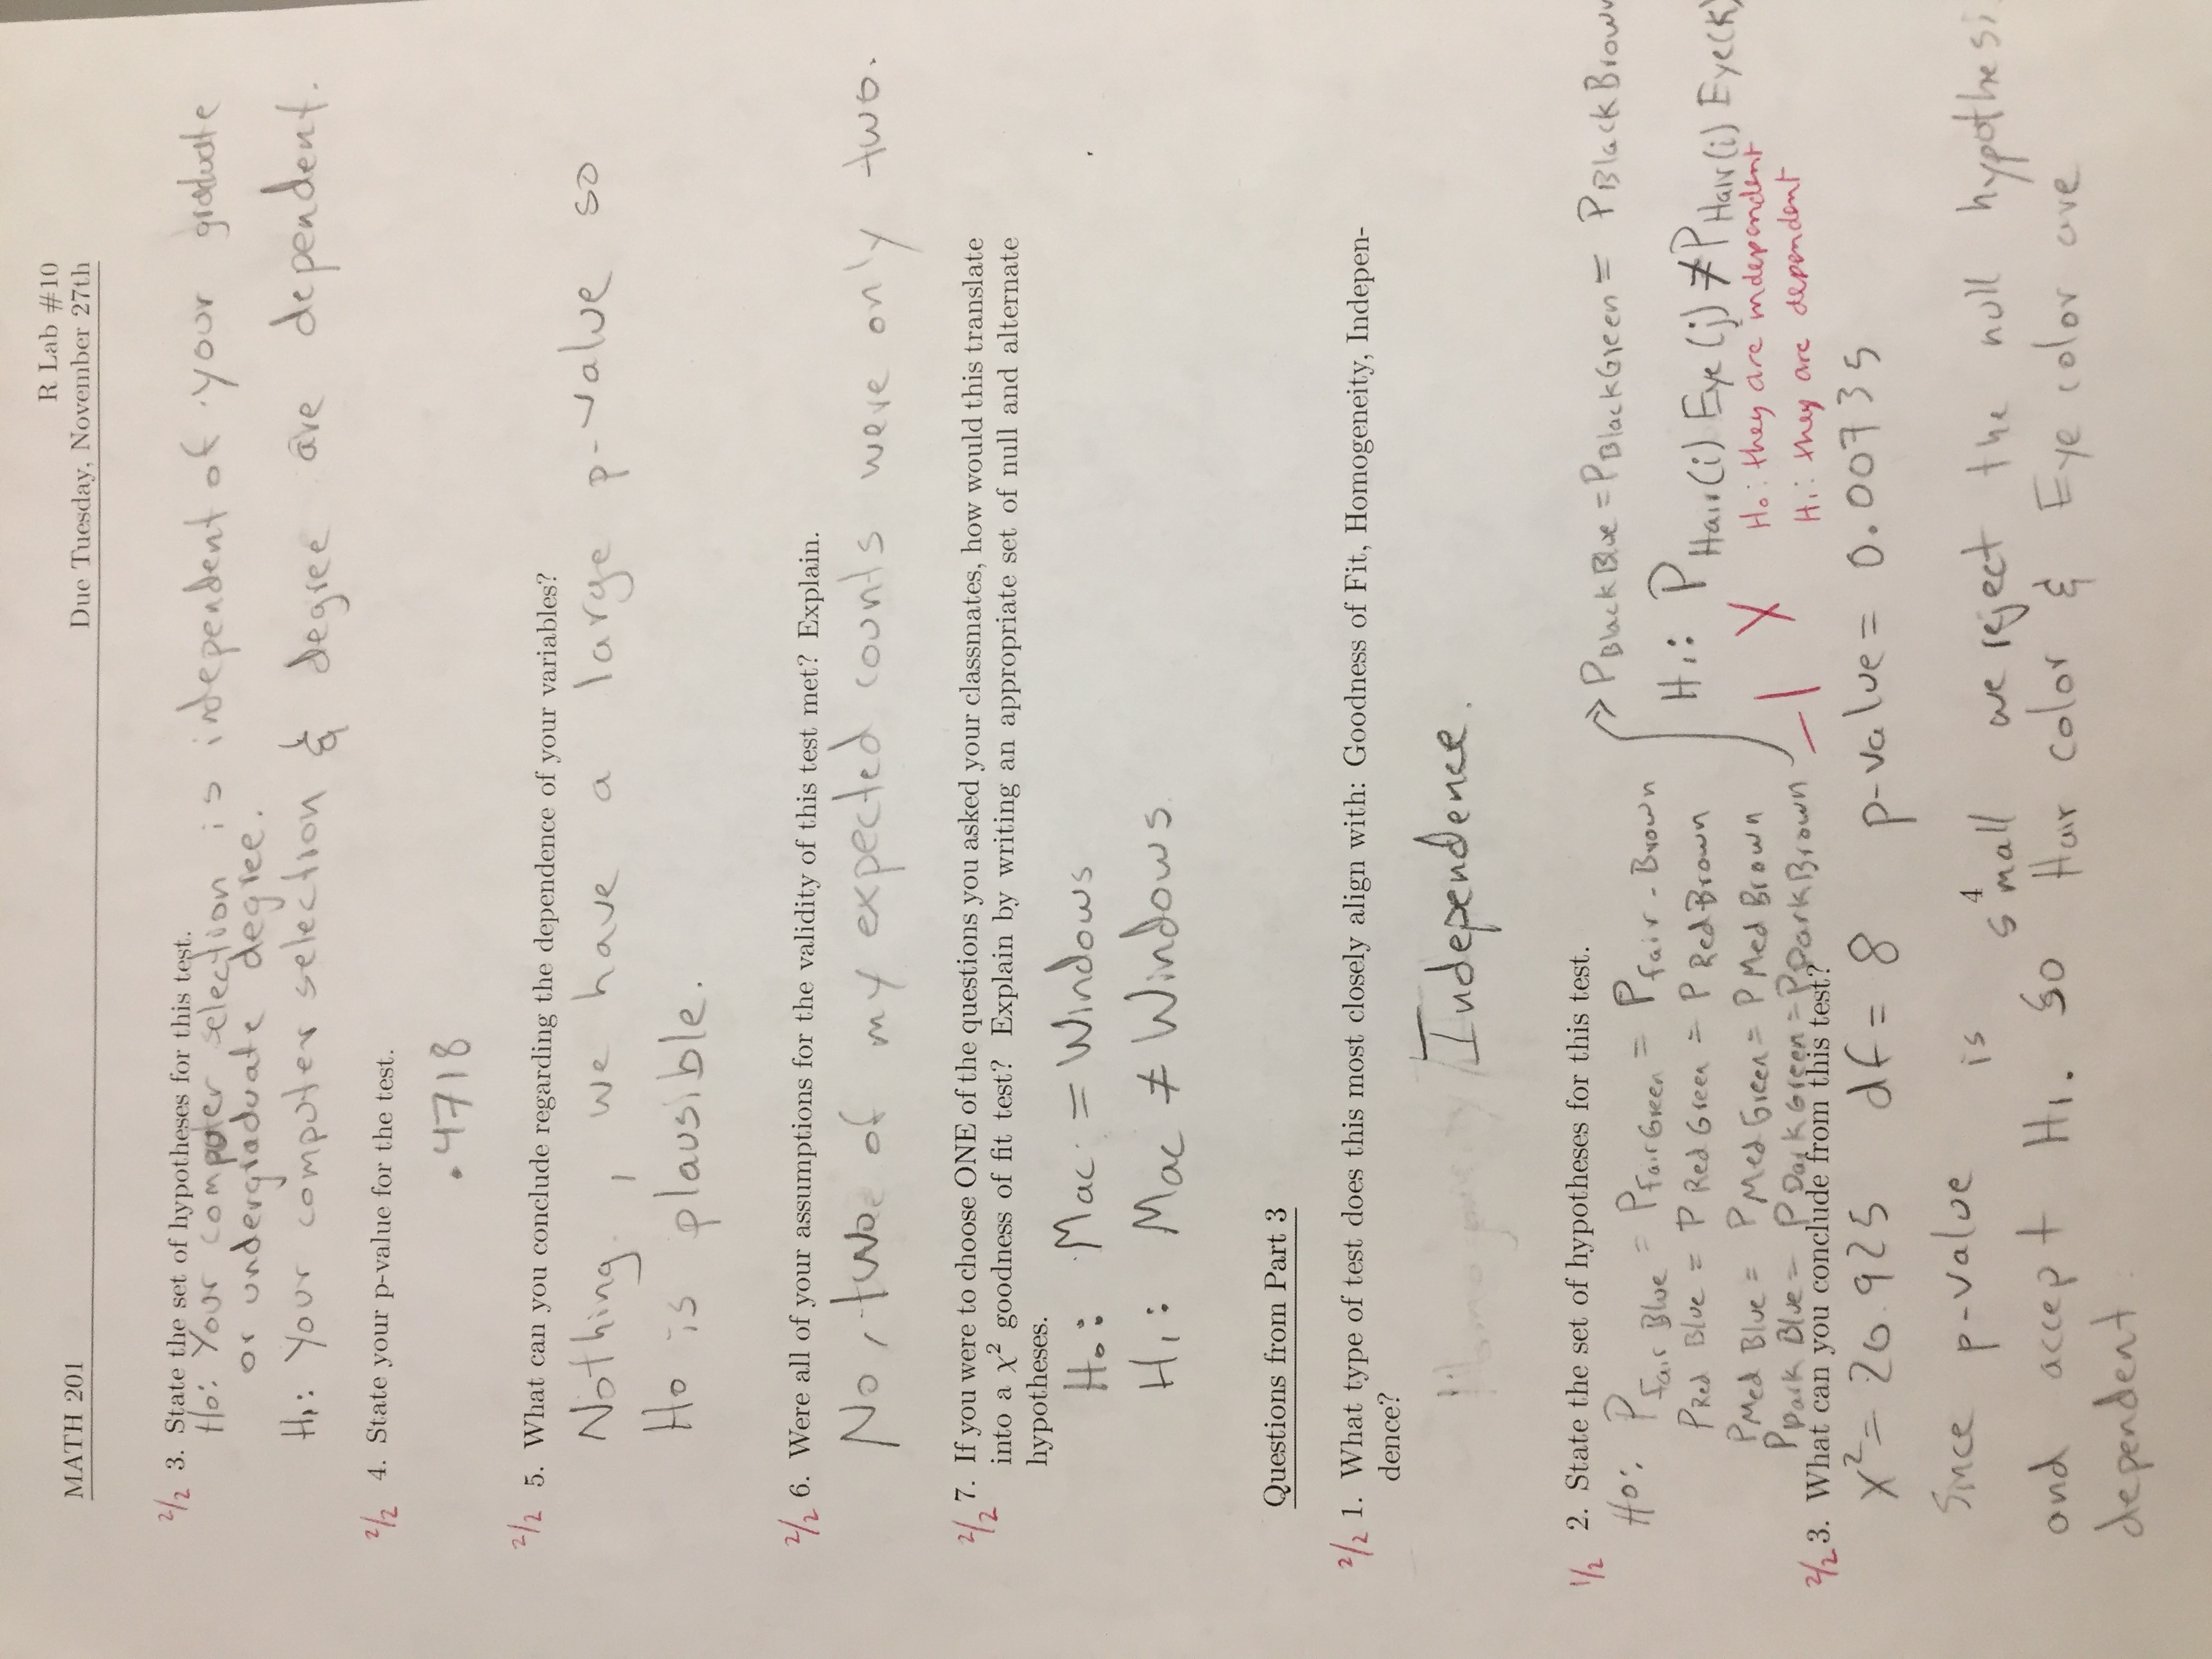 R Lab #10
MATH 201
Due Tuesday, November 27th
2/2 3. State the set of hypotheses for this test.
Ho: Your computer selection is independent of your graduate
or undergraduate degree.
H1: Your computer selection & degree are dependent.
2/2 4. State your p-value for the test.
.4718
2/2 5. What can you conclude regarding the dependence of your variables?
Nothing, we have a large p-value so
Ho is plausible.
2/2 6. Were all of your assumptions for the validity of this test met? Explain.
No, two of my expected counts were only two.
2/2 7. If you were to choose ONE of the questions you asked your classmates, how would this translate
into a χ² goodness of fit test? Explain by writing an appropriate set of null and alternate
hypotheses.
Ho: Mac = Windows
H1: Mac ≠ Windows
Questions from Part 3
2/2 1. What type of test does this most closely align with: Goodness of Fit, Homogeneity, Indepen-
dence?
Independence.
1/2 2. State the set of hypotheses for this test.
Ho: P Fair Blue = P Fair Green = P fair - Brown
P Red Blue = P Red Green = P Red Brown
P Med Blue = P Med Green = P Med Brown
P Dark Blue = P Dark Green = P Dark Brown
→ P Black Blue = P Black Green = P Black Brown
H1: P Hair(i) Eye(j) ≠ P Hair(i) Eye(k)
-1 X
Ho: they are independent
H1: they are dependent
2/2 3. What can you conclude from this test?
X² = 20.925 df = 8 p-value = 0.00735
Since p-value is small we reject the null hypothesi
4
and accept H1. So Hair color & Eye color are
dependent.